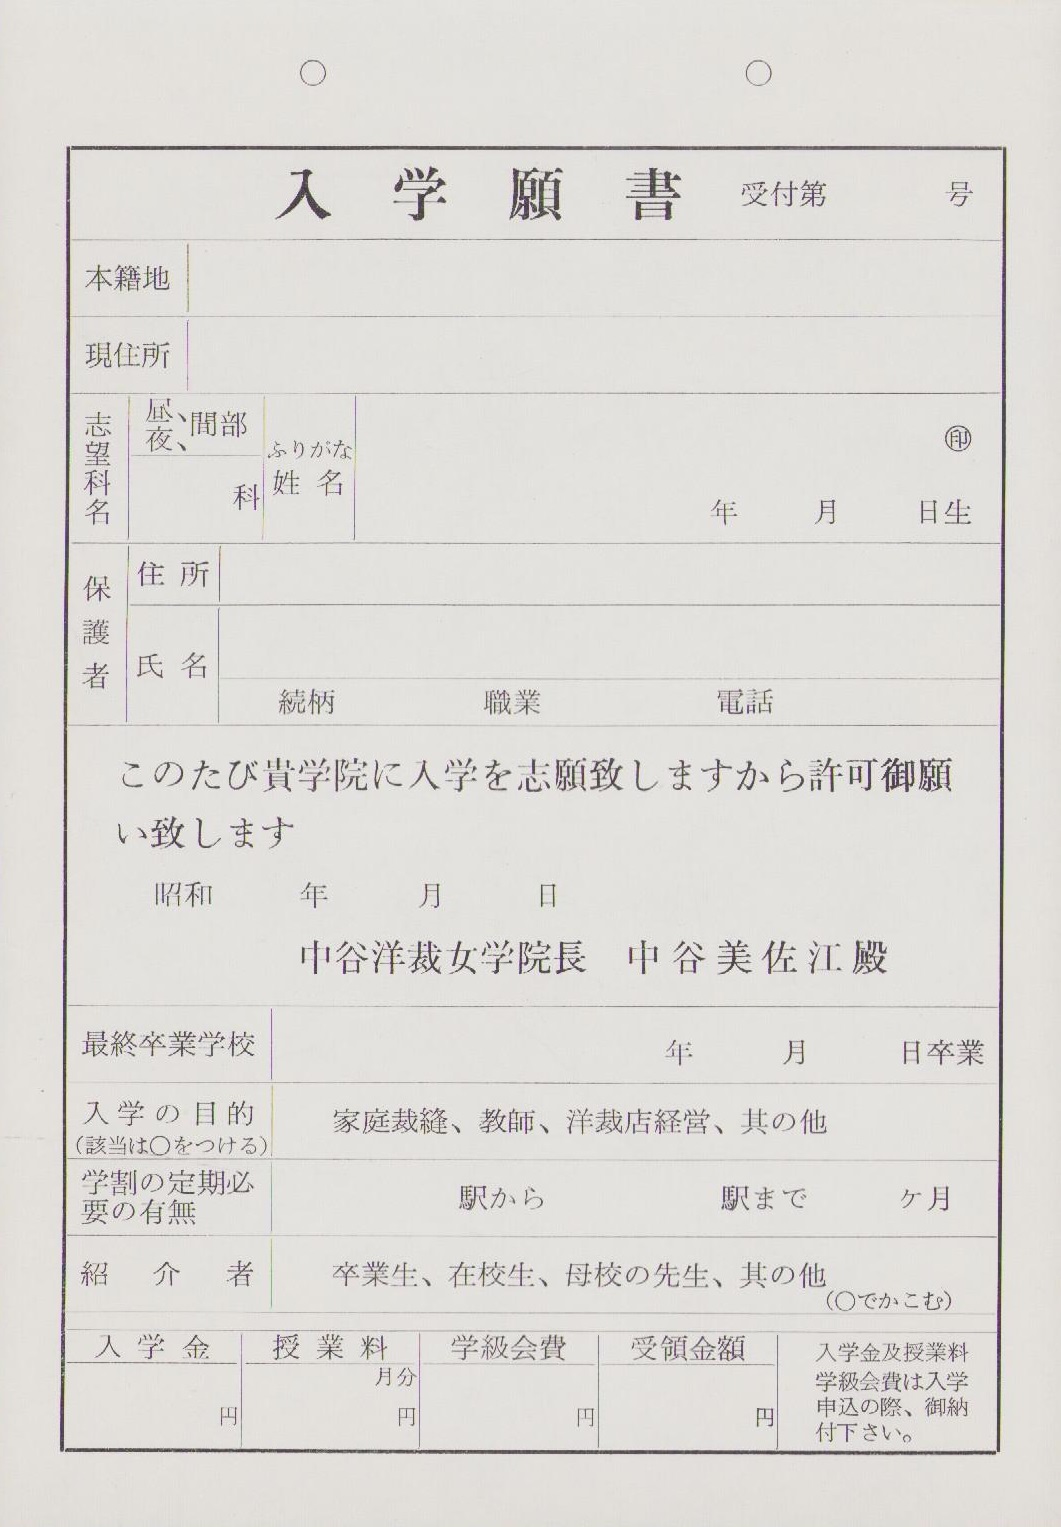 入学願書 受付第 号
本籍地
現住所
志望科名
昼、夜、間部
科
ふりがな
姓名
㊞
年 月 日生
保護者
住所
氏名
続柄 職業 電話
このたび貴学院に入学を志願致しますから許可御願
い致します
昭和 年 月 日
中谷洋裁女学院長 中谷美佐江殿
最終卒業学校 年 月 日卒業
入学の目的
(該当は○をつける)
家庭裁縫、教師、洋裁店経営、其の他
学割の定期必
要の有無
駅から 駅まで ヶ月
紹介者 卒業生、在校生、母校の先生、其の他
(○でかこむ)
入学金 授業料 学級会費 受領金額
月分
円 円 円 円
入学金及授業料
学級会費は入学
申込の際、御納
付下さい。